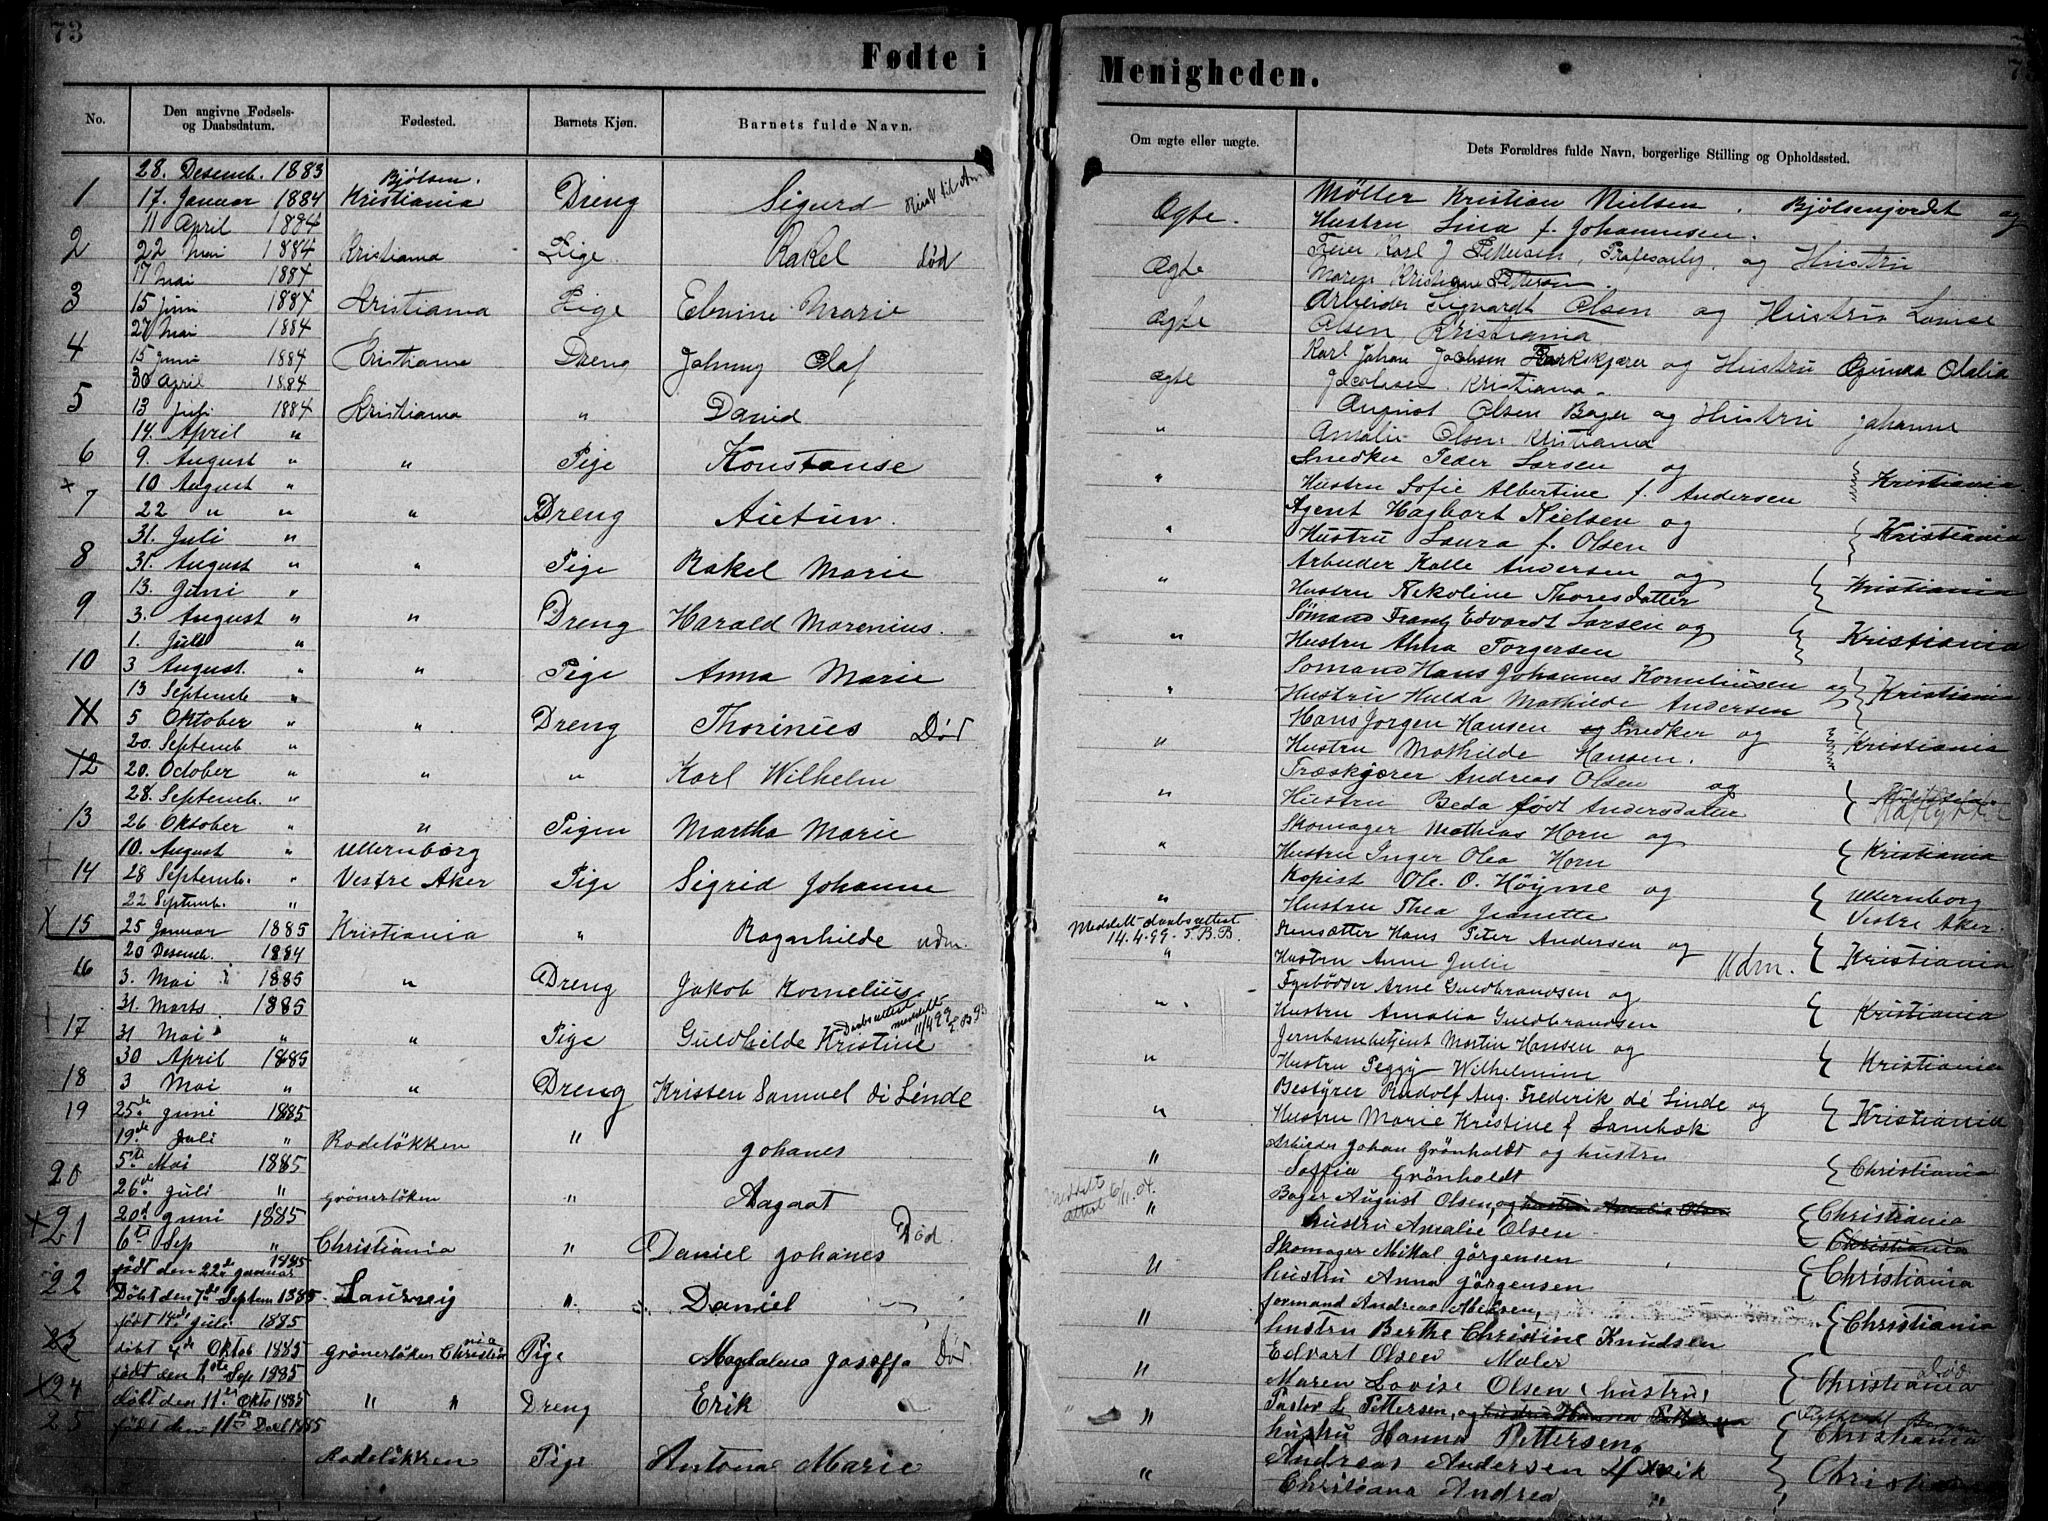 73
Fødte i Menigheden.
No. Den angivne Fødsels- og Daabsdatum. Fødested. Barnets Kjøn. Barnets fulde Navn. Om ægte eller uægte. Dets Forældres fulde Navn, borgerlige Stilling og Opholdssted.
28. Desemb. 1883 Bjölsen.
1 17. Januar 1884 Kristiania Dreng Sigurd
11 April 1884
2 22 Mai 1884 Kristiania Pige Rakel død
17 Mai 1884
3 15 Juni 1884 Kristiania Pige Marie
Mai 1884
4 15 Juni 1884 Kristiania Dreng Johnny Olaf
30 April 1884
5 13 Juli 1884 Kristiania " David
14. April "
6 9. August " " Pige Konstanse
10 August "
x 7 22 " " " Dreng Autun.
31. Juli "
8 31. August " " Pige Rakel Marie
13. Juni "
9 3. August " " Dreng Harald Marenius.
1. Juli "
10 3 August. " " Pige Anna Marie
13 Septemb "
11 5 Oktober " " Dreng Thorinius Död
20. Septemb "
12 20. October " " " Karl Wilhelm
28. Septemb. "
13 26 Oktober " " Pigen Martha Marie
10. August " Ullernborg
+ 14 28 Septemb. " Vestre Aker Pige Sigrid Johanne
22 Septemb. "
x 15 25 Januar 1885 Kristiania " Ragnhilde udm.
20 Desemb. 1884
16 3. Mai 1885 " Dreng Jakob Kornelius
31. Marts 1885
+ 17 31 Mai " " Pige Guldhilde Kristine Daabsattest meddelt 11/4 99 T.B.B
30 April 1885
18 3 Mai " " Dreng Kristen Samuel di Linde
19 25de Juni 1885
19de Juli " Rodelökken " Johanes
20 5te Mai 1885
26de Juli " Grönerlöken " Aagaat
x 21 20de Juni 1885
6te Sep " Christiania " Daniel Johanes Död.
22 født den 22de Januar 1885
Döbt den 7de Septem 1885 Laurvig " Daniel
født 14de Juli 1885
23 döbt 4de Oktob 1885 Grönerlöken Christiania Pige Magdalena Josefa Död
født den 1ste Sep 1885
x 24 döbt den 11te Okto 1885 " " Dreng Erik
25 født den 11te Des 1885
Rodelökken Pige Antona Marie
Ægte. Møller Kristian Nielsen. Bjölsenjordet og
Hustru Lina f. Johannesen.
Ægte Feier Karl J Pettersen, og Hustru
Maren Kristiane Pettersen.
ægte Arbeider Sigvardt Olsen og Hustru Lovise
Olsen, Kristiania
ægte Karl Johan og Hustru
Jacobsen. Kristiania.
" August Olsen Bager og Hustru Johanne
Amalie Olsen, Kristiania
" Snedker Peder Larsen og
Hustru Sofie Albertine f. Andersen } Kristiania.
" Agent Hagbart Nielsen og
Hustru Laura f. Olsen } Kristiania
" Arbeider Kalle Andersen og
Hustru Nikoline Thoresdatter } Kristiania
" Sömand Frantz Edvardt Larsen og
Hustru Anna Torgersen } Kristiania
" Sömand Hans Johannes Korneliusen og
Hustru Hulda Mathilde Andersen } Kristiania
" Hans Jörgen Hansen og Snedker og
Hustru Mathilde Hansen. } Kristiania
" Træskjærer Andreas Olsen og
Hustru Beda födt Andersdatter }
" Skomager Mathias Horn og
Hustru Inger Olea Horn } Kristiania
" Kopist Ole. O. Höyme og
Hustru Thea Jeanette } Ullernborg Vestre Aker.
Meddelt daabsattest 14.4.99. T.B.B.
" Hans Peter Andersen og
Hustru Anne Julie Udm. } Kristiania
" Fyrbödder Arne Guldbrandsen og
Hustru Amalia Guldbrandsen } Kristiania
" Jernbanebetjent Martin Hansen og
Hustru Peggy Wilhelmine } Kristiania
" Bestyrer Rudolf Aug. Frederik dé Linde og
Hustru Marie Kristine f Lambæk } Kristiania
" Arbeider Johan Grönholdt og hustru
Soffia Grönholdt } Christiania
Meddelt attest 6/11.04.
" Bager August Olsen, og hustru Amalia Olsen
hustru Amalie Olsen } Christiania
Christiania
" Skomager Mikal Jörgensen
hustru Anna Jörgensen } Christiania
" formand Andreas
hustru Berthe Christine Knudsen } Christiania
" Edvart Olsen Maler
Maren Lovise Olsen (hustru) } Christiania Död
" Pastor Pettersen, og hustru Hanna
hustru Hanna Pettersen } Christiania
" Andreas Andersen
Christiana Andrea " } Christiania